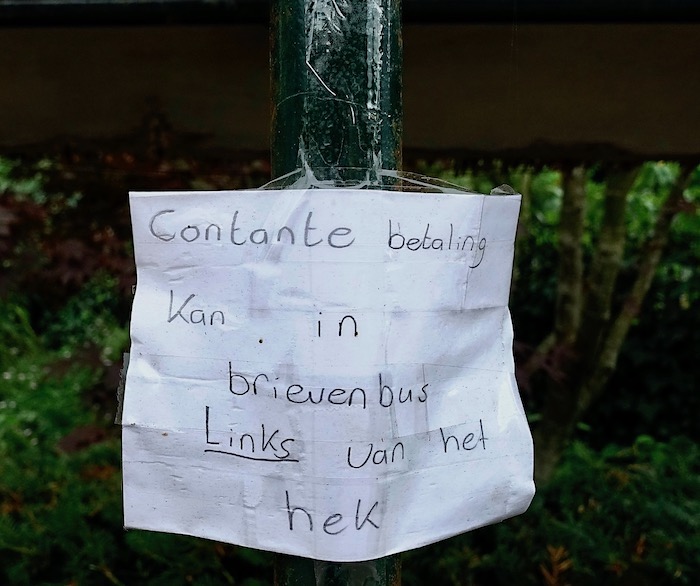 Contante betaling
Kan in
brievenbus
Links van het
hek